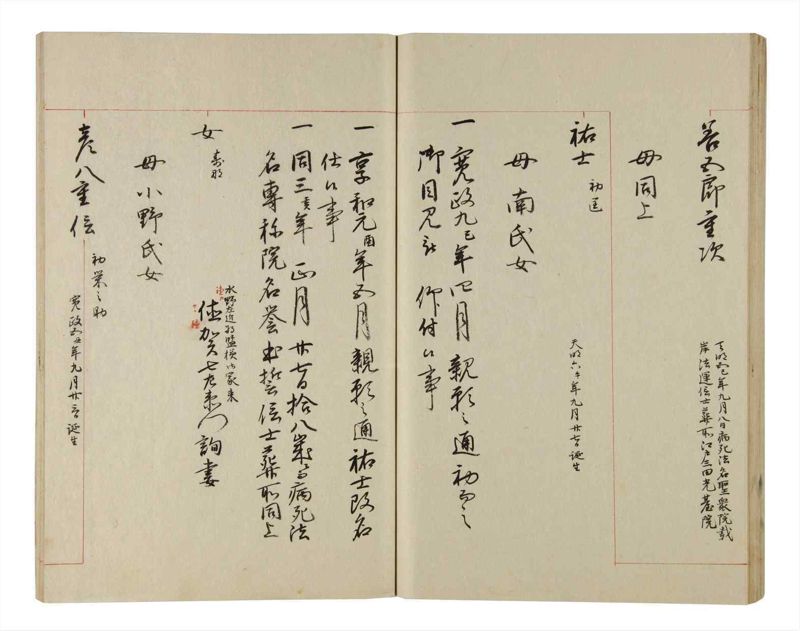 善五郎重次
天明五巳年九月八日病死法名聖衆院載
岸法運信士葬所江戸三田光台院
母同上
祐士
初 匡
天明六午年九月廿七日誕生
母 南氏女
一 寛政九巳年四月親願之通初而之
御目見被 仰付候事
一 享和元酉年五月親願之通祐士改名
仕候事
一 同三亥年 正月 廿七日拾八歳ニ而病死法
名専称院名誉 誓信士葬所同上
女
寿
水野左近将監様御家来
佐賀七左衛門詢妻
母 小野氏女
彦八重信
初 栄之助
寛政五丑年九月廿 日誕生